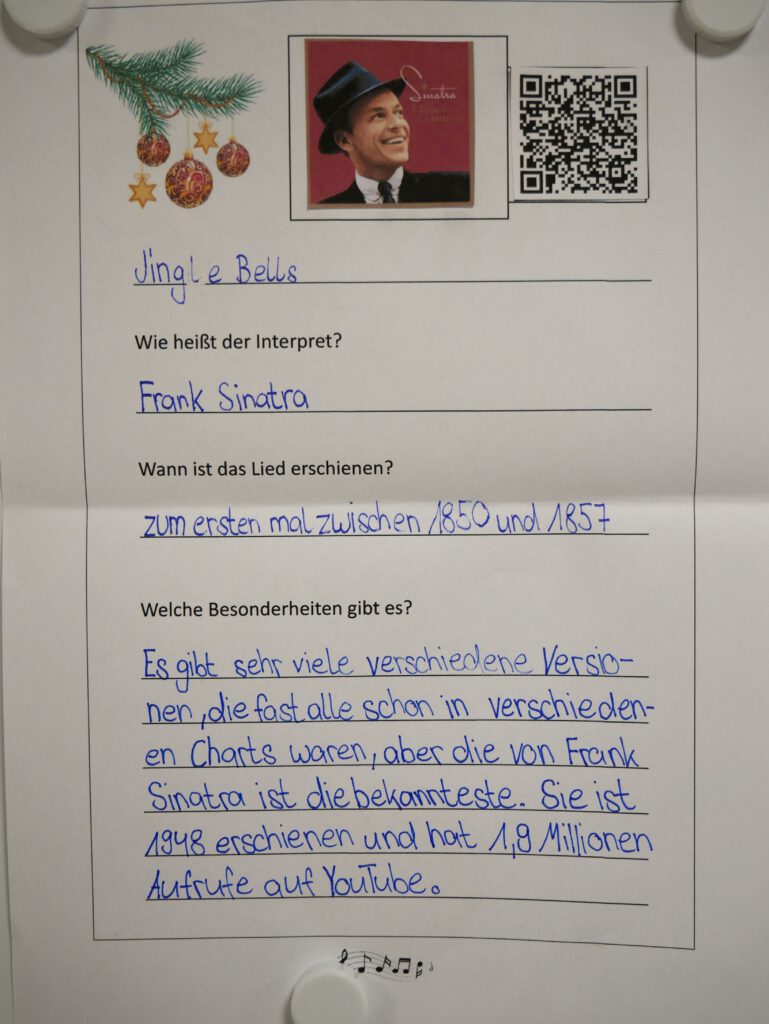 Sinatra
Ultimate
Christmas
Jingle Bells
Wie heißt der Interpret?
Frank Sinatra
Wann ist das Lied erschienen?
zum ersten mal zwischen 1850 und 1857
Welche Besonderheiten gibt es?
Es gibt sehr viele verschiedene Versio-
nen, die fast alle schon in verschieden-
en Charts waren, aber die von Frank
Sinatra ist die bekannteste. Sie ist
1948 erschienen und hat 1,9 Millionen
Aufrufe auf YouTube.